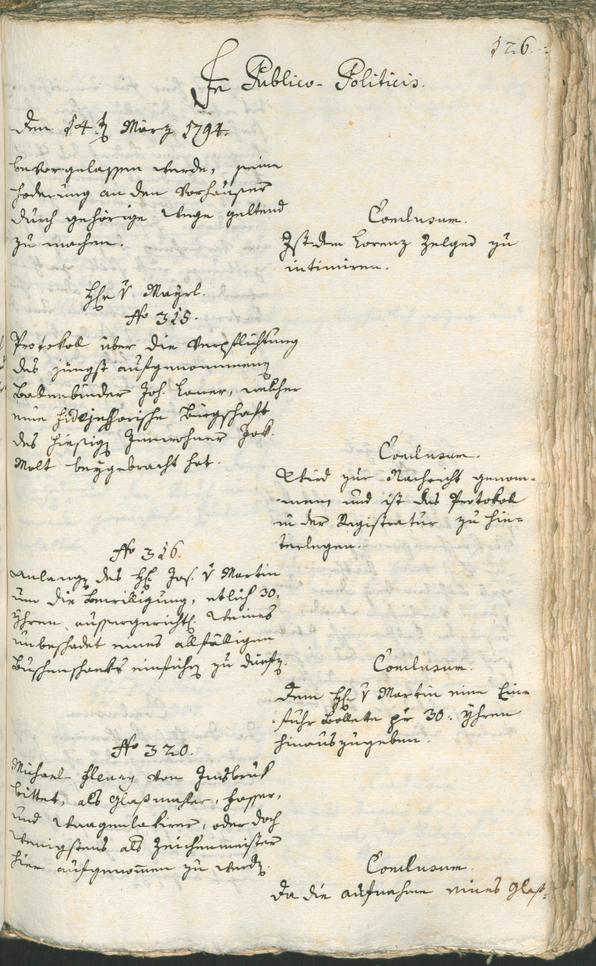 126.
In Publico-Politicis.
den 14 t März 1794.
bevorgelassen werde, seine
foderung an den Vorhauser
durch gehörige Wege geltend
zu machen.
Conclusum.
Ist dem Lorenz Zelger zu
intimiren.
H v Mayrl.
No 315.
Protokol über die Verpflichtung
des jüngst aufgenommenen
Botenbinder Joh. Lamer, welcher
eine fidejussorische Bürgschaft
des hiesigen Innwohner Jos.
Molt beygebracht hat.
Conclusum.
Wird zur Nachricht genom-
men, und ist das Protokol
in der Registratur zu hin-
terlegen.
No 316.
Anlangen des H Jos. v Martin
um die Bewilligung, etlich 30
Yhren aussergericht Weines
unbeschadet eines allfälligen
Buschenschanks einführen zu dürfen.
Conclusum.
Dem H v Martin eine Ein-
fuhr Bollete pr 30: Yhren
hinauszugeben.
No 320.
Michael von Innsbruck
bittet, als Glasmahler, Fasser,
und Waagenlakirer, oder doch
wenigstens als Zeichenmeister
hier aufgenommen zu werden.
Conclusum.
Da die aufnahme eines Glaß-